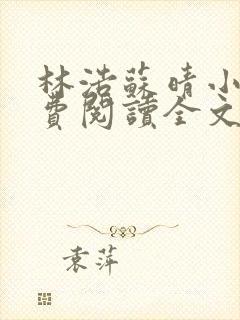 林浩蘇晴小
費閱讀全文
袁萍